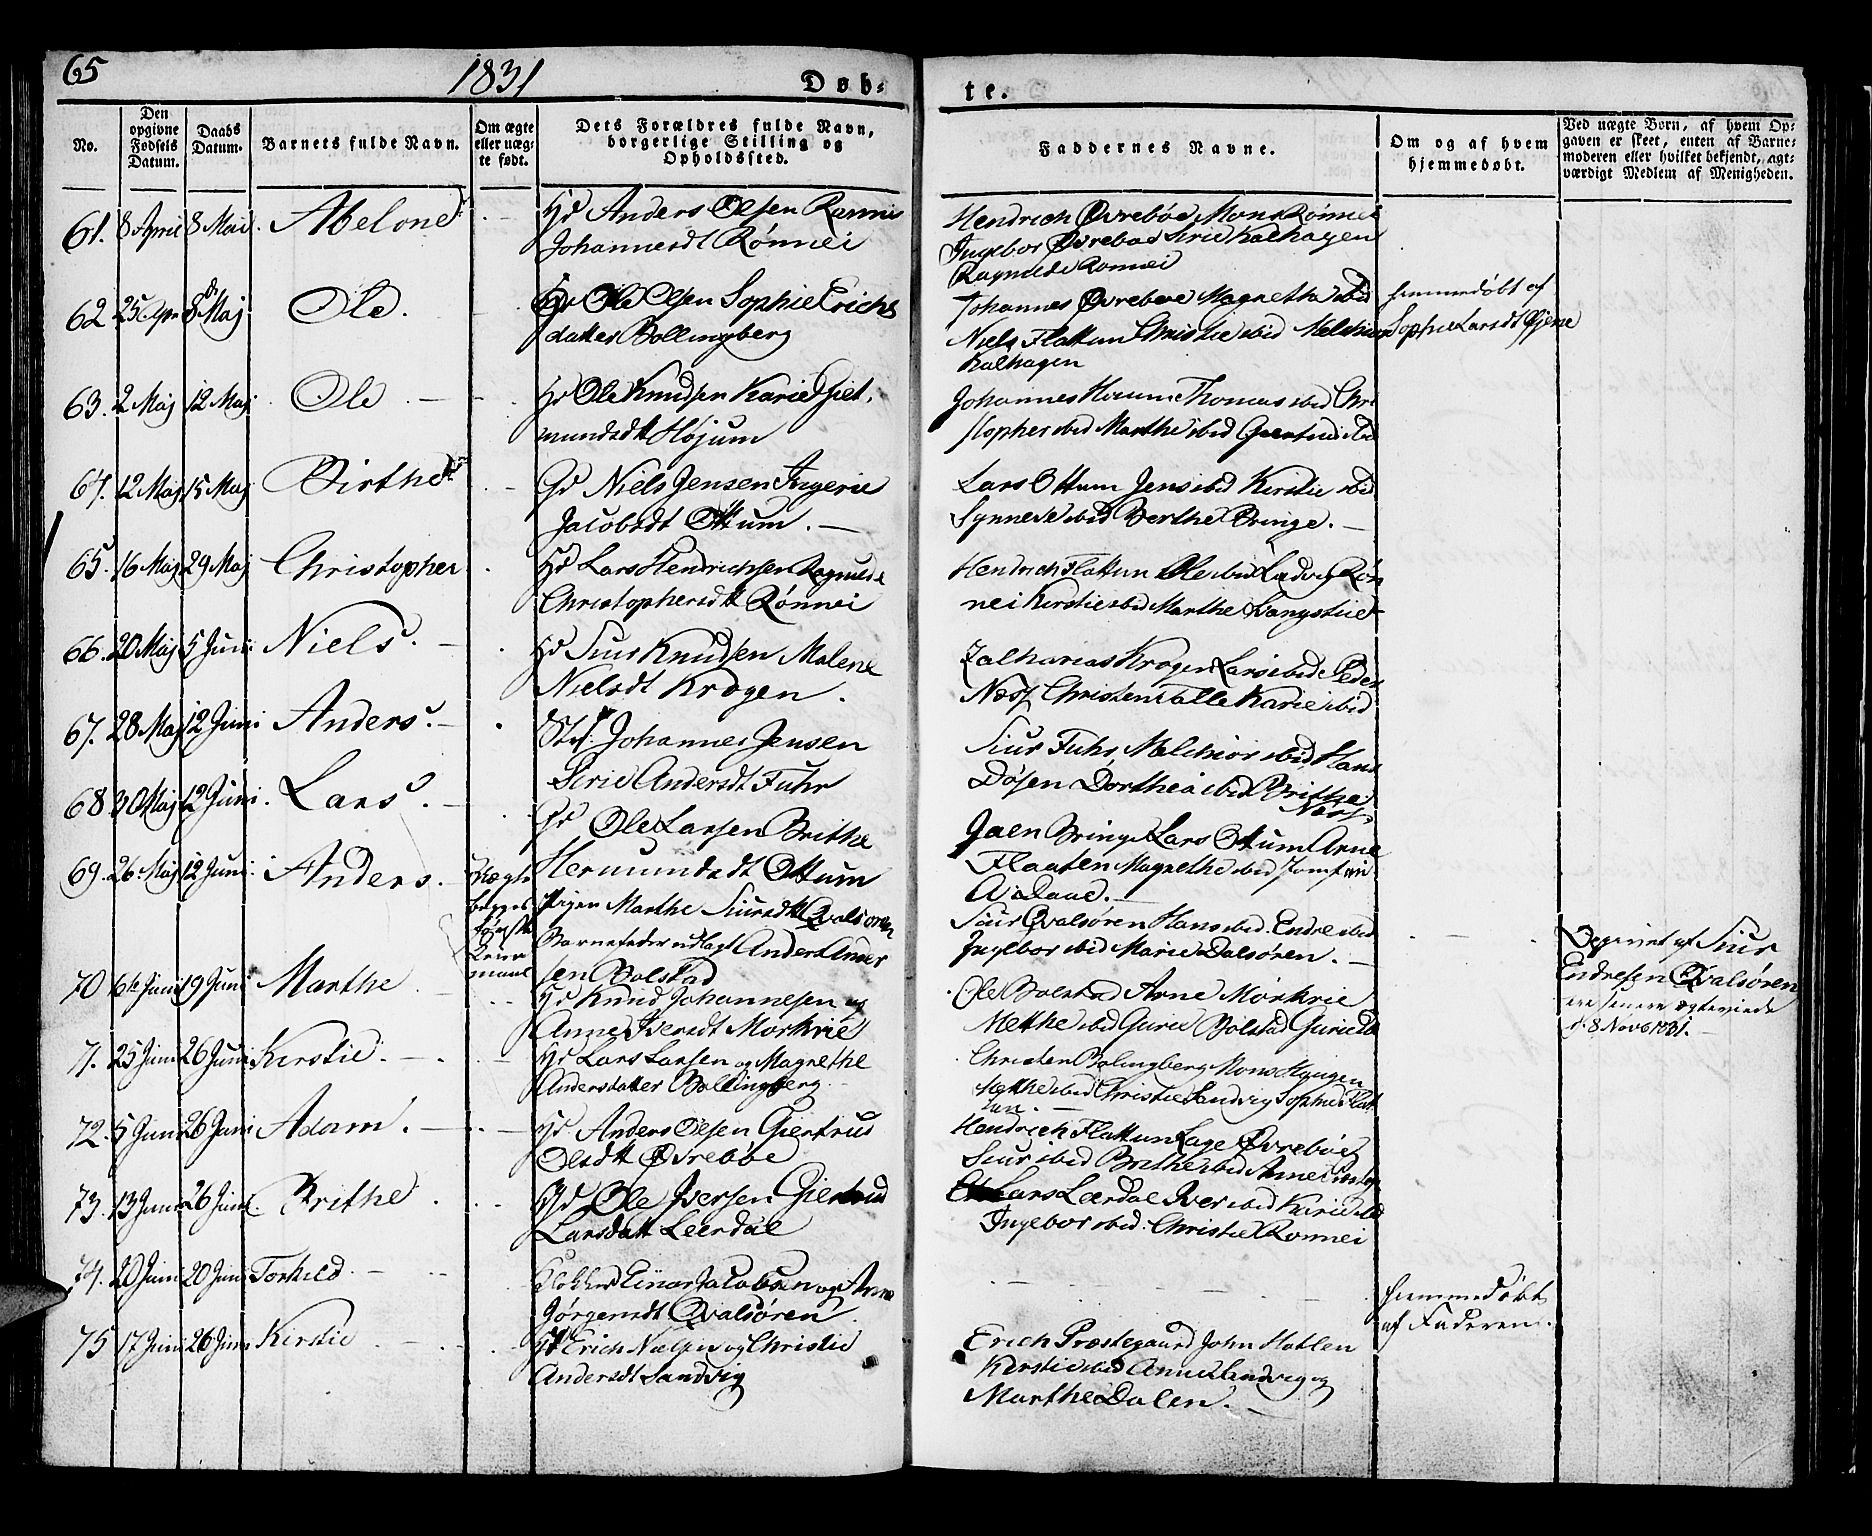 65
1831
Døb-
te.
No.
Den opgivne Fødsels Datum.
Daabs Datum.
Barnets fulde Navn.
Om ægte eller uægte født.
Dets Forældres fulde Navn, borgerlige Stilling og Opholdssted.
Faddernes Navne.
Om og af hvem hjemmedøbt.
Ved uægte Børn, af hvem Opgaven er skeet, enten af Barnemoderen eller hvilket bekjendt, agtværdigt Medlem af Menigheden.
61. 8 April 8 Mai Abelone
Anders Olsen
Johannesdt Rønnei
Hendrich Øvrebøe Mons Rønnei
Ingebor Øvrebøe Sirie Kalhagen
Ragnilde Rønnei
62 25 Apr 8 Maj Ole
Ole Olsen Sophie Erichs
datter Bollingberg
Johannes Øvrebøe Magnethe ibid
Niels Flattun Christie ibid Melchior
Kalhagen
hjemmedøbt af
Sophie Larsdt
63. 2 Maj 12 Maj Ole
Ole Knudsen Karie Giet-
mundsdt Højum
Johannes Høium Thomas ibid Chri
stopher ibid Marthe ibid Giertrud ibid
64. 12 Maj 15 Maj Birthe
Niels Jensen Ingerie
Jacobsdt Ottum
Lars Ottum Jens ibid Kirstie ibid
Synneve ibid Berthe Bringe.
65. 16 Maj 29 Maj Christopher
Lars Hendrichsen Ragnilde
Christophersdt Rønnei
Hendrich Flattun Ole ibid Ludvig Røn
nei Kirstie ibid Marthe
66. 20 Maj 5 Juni Niels
Siur Knudsen Malene
Nielsdt Krogen.
Zacharias Krogen Lars ibid Peder
Næss Christen Talle Karie ibid
67. 28 Maj 12 Juni Anders
Johannes Jensen
Sirie Andersdt Fuhr
Siur Fuhr Melchior ibid Hans
Døsen Dorthea ibid Brithe
Næss
68 30 Maj 12 Juni Lars
Ole Larsen Brithe
Hermundsdt Ottum
Joen Bringe Lars Ottum Arne
Flaaten Magnethe ibid Jomfrue
69. 26 Maj 12 Juni Anders
Uægte
begges
første
Leier
maal
Pigen Marthe Siursdt Qvalsøren
Barnefader udlagt Anders Ander
sen Bolstad
Siur Qvalsøren Hans ibid Endre ibid
Ingebor ibid Marie Dalsøren.
Opgivet af Siur
Endresen Qvalsøren
ere senere ægteviede
d. 8 Novb 1831.
70 6te Juni 19 Juni Marthe
Knud Johannesen og
Anne Iversdt Mørkrie
Ole Bolstad Arne Mørkrie
Methe ibid Gurie Bolstad Gurie
71. 25 Juni 26 Juni Kirstie.
Lars Larsen og Magnethe
Andersdatter Bollingberg
Christen Bolingberg Mons Haugen
Methe ibid Christie Sandvig Sophie Flat
tun.
72. 5 Juni 26 Juni Adam.
Anders Olsen Giertrud
Olsdt Øvrebøe
Hendrich Flattun Lage Øvrebøe
Siur ibid Brithe ibid Anne
73. 13 Juni 26 Juni Brithe
Ole Iversen Giertrud
Larsdatt Leerdal
Lars Lærdal Iver ibid Karie ibid
Ingebor ibid. Christie Rønnei
74. 20 Juni 20 Juni Torkild
Klokker Einar Jacobsen og Anne
Jørgensdt Qvalsøren
hjemmedøbt
af Faderen.
75 17 Juni 26 Juni Kirstie
Erich Nielsen og Christie
Andersdt Sandvig
Erich Præstegaard John Hatlen
Kirstie ibid Anne Sandvig og
Marthe Dalen.